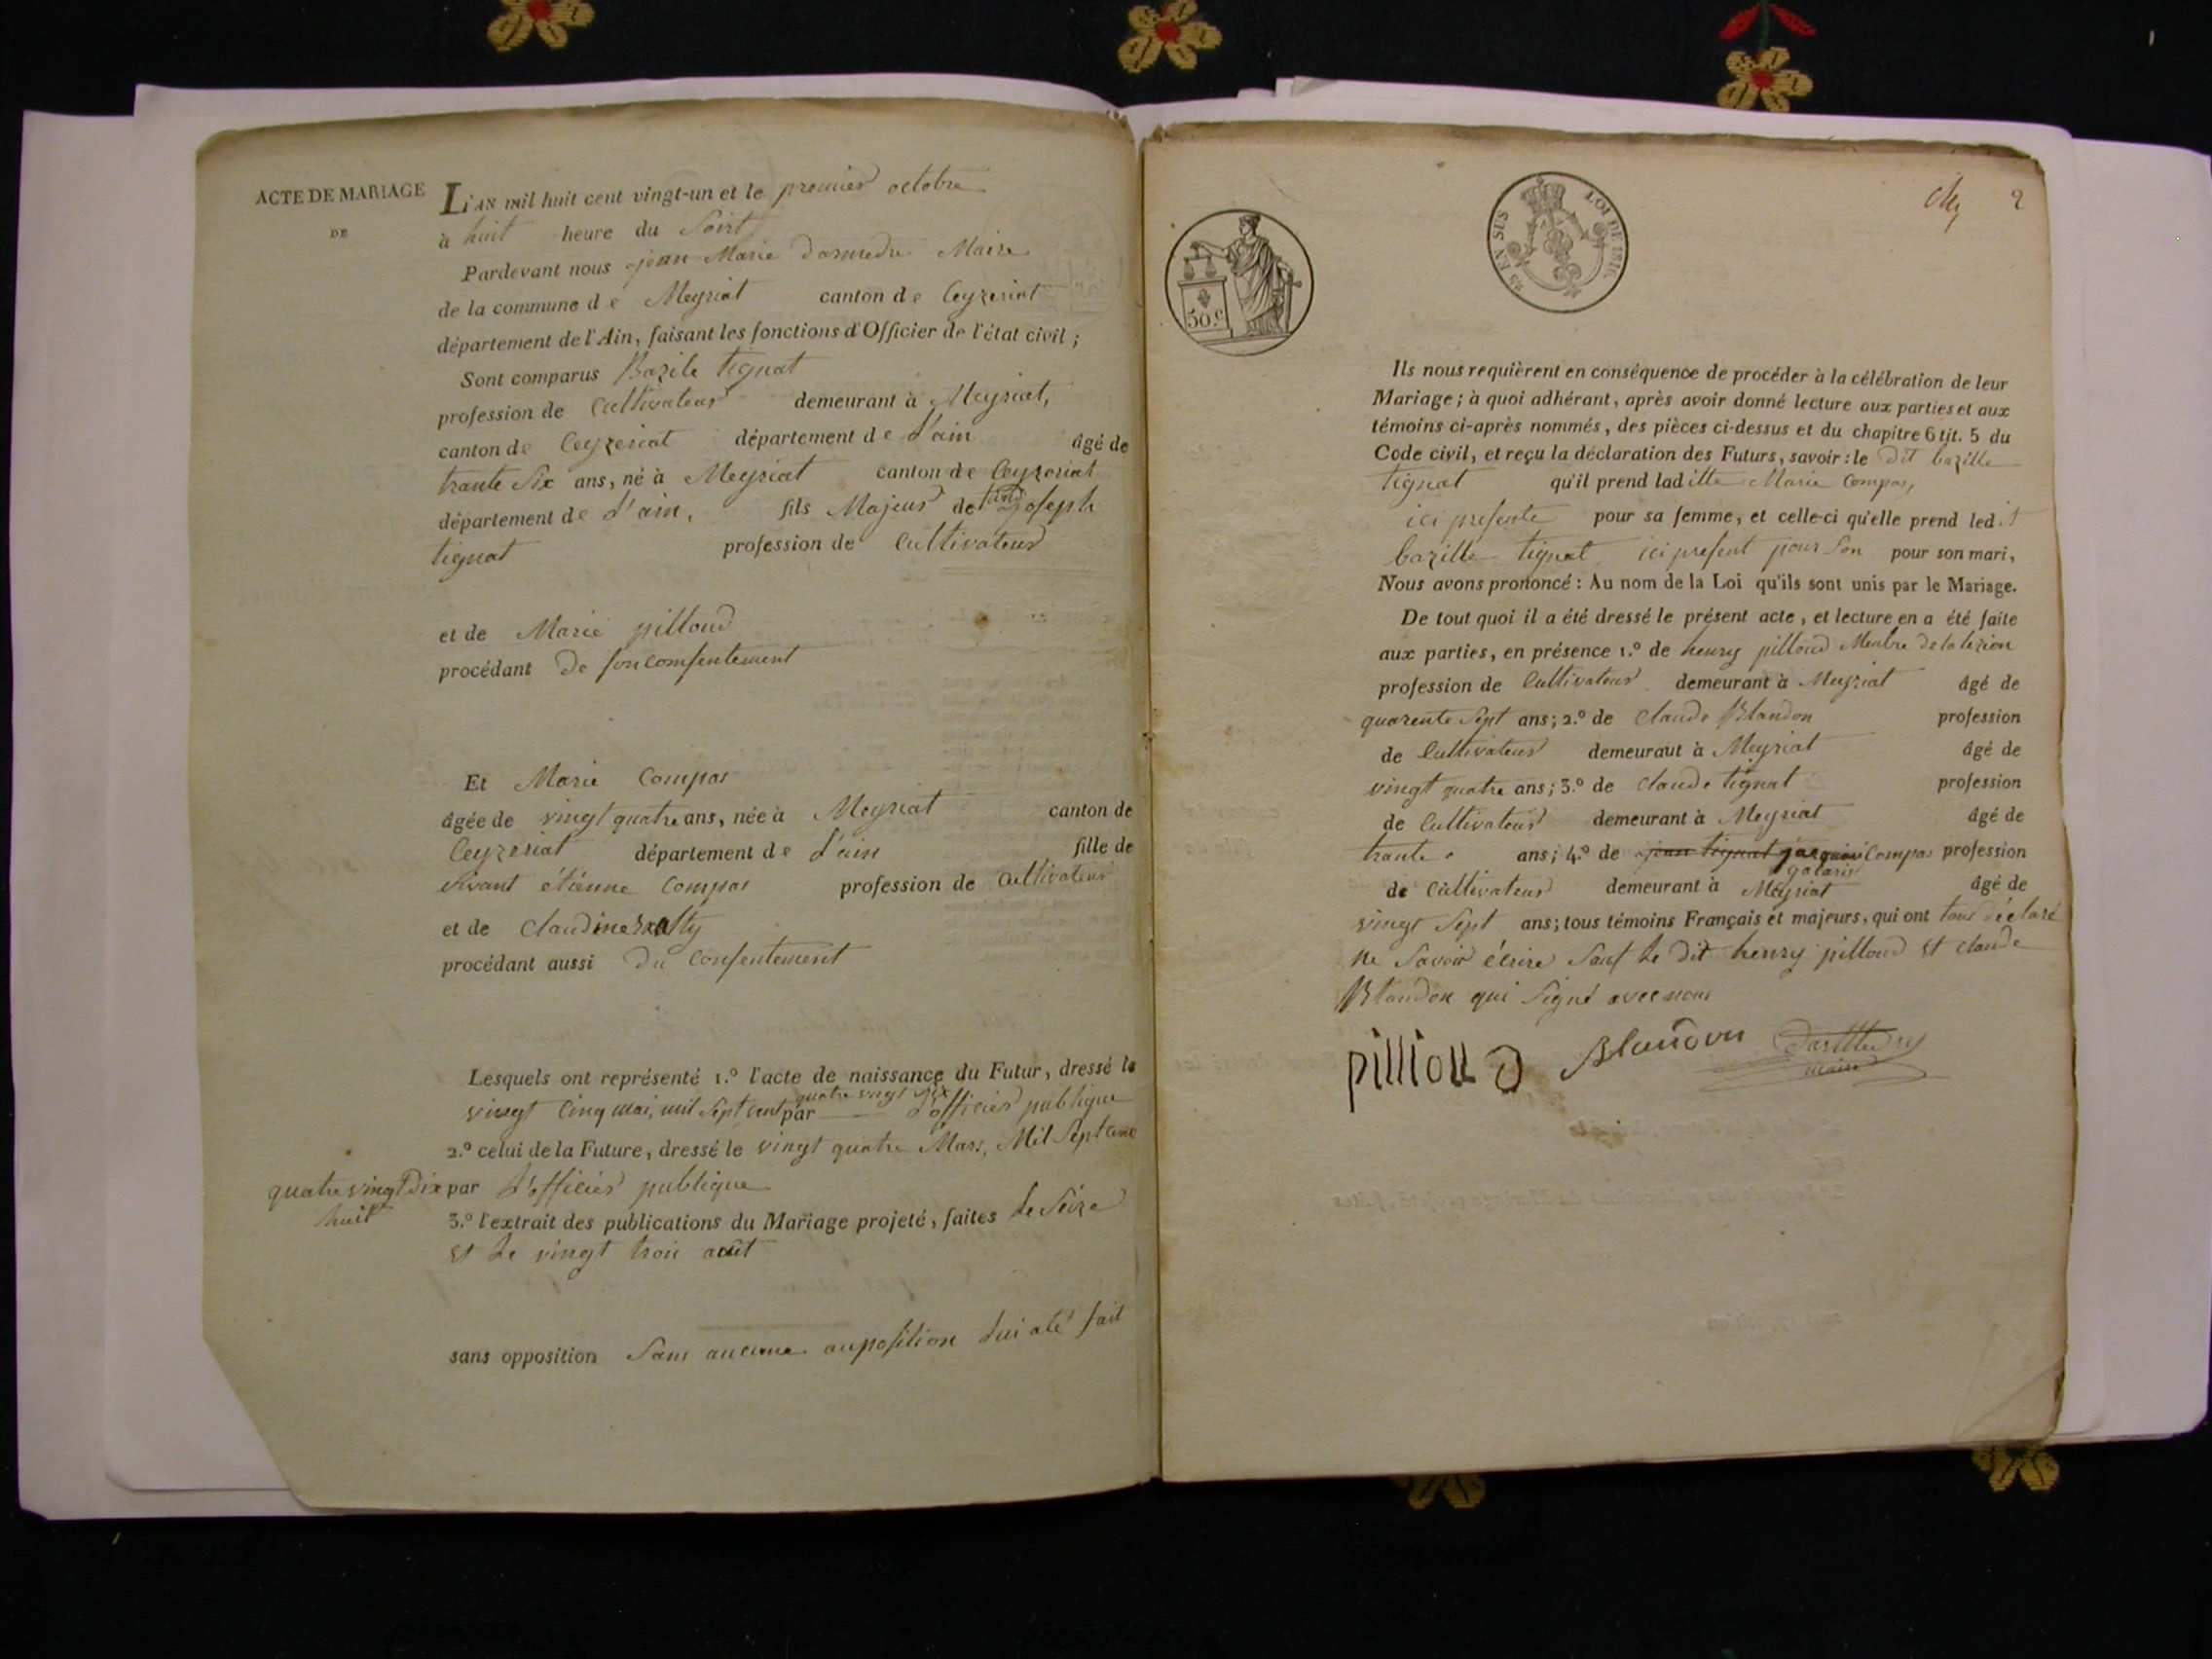 ACTE DE MARIAGE
DE
L'AN mil huit cent vingt-un et le premier octobre
à huit heure du Soirt
Pardevant nous jean Marie Maire
de la commune de Meyriat canton de Ceyzeriat
département de l'Ain, faisant les fonctions d'Officier de l'état civil ;
Sont comparus Bazile tignat
profession de Cultivateur demeurant à Meyriat,
canton de Ceyzeriat département de L'ain âgé de
trante Six ans, né à Meyriat canton de Ceyzeriat
département de L'ain, fils Majeur de joseph
tignat profession de Cultivateur
et de Marie pilloud
procédant De son consentement
Et Marie Compas
âgée de vingt quatre ans, née à Meyriat canton de
Ceyzeriat département de L'ain fille de
vivant étienne Compas profession de Cultivateur
et de Claudine
procédant aussi du Consentement
Lesquels ont représenté 1.º l'acte de naissance du Futur, dressé le
quatre vingt Six
vingt Cinq mai, mil Sept cent par L'officier publique
2.º celui de la Future, dressé le vingt quatre Mars, Mil Sept cent
quatre vingt Dix par L'officier publique
huit
3.º l'extrait des publications du Mariage projeté, faites Le Seize
et Le vingt trois août
sans opposition Sans aucune oupposition Lui até fait
2
50.C
25 EN SUS LOI DE 1816
Ils nous requièrent en conséquence de procéder à la célébration de leur
Mariage ; à quoi adhérant, après avoir donné lecture aux parties et aux
témoins ci-après nommés, des pièces ci-dessus et du chapitre 6 tit. 5 du
Code civil, et reçu la déclaration des Futurs, savoir : le dit bazille
tignat qu'il prend laditte Marie Compas,
ici presente pour sa femme, et celle-ci qu'elle prend ledit
bazille tignat ici present pour Son pour son mari,
Nous avons prononcé : Au nom de la Loi qu'ils sont unis par le Mariage.
De tout quoi il a été dressé le présent acte, et lecture en a été faite
aux parties, en présence 1.º de henry pilloud Menbre de la lezion
profession de Cultivateur demeurant à Meyriat âgé de
quarente Sept ans ; 2.º de Claude Blandon profession
de Cultivateur demeurant à Meyriat âgé de
vingt quatre ans ; 3.º de Claude tignat profession
de Cultivateur demeurant à Meyriat âgé de
trante ans ; 4.º de jean tignat Compas profession
de Cultivateur demeurant à Meyriat âgé de
vingt Sept ans ; tous témoins Français et majeurs, qui ont tous déclaré
ne Savoir écrire Sauf Le Dit henry pilloud et Claude
Blandon qui Signé avec nous
pillioud Blandon
maire